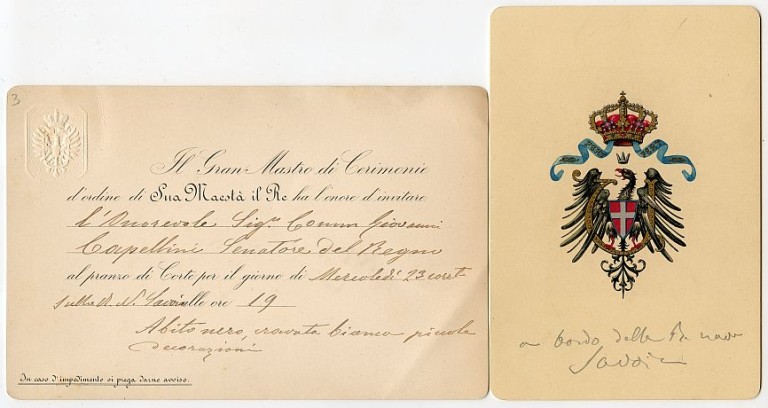 3
Il Gran Mastro di Cerimonie
d'ordine di Sua Maestà il Re ha l'onore d'invitare
l'Onorevole Sig.r Comm Giovanni
Capellini Senatore del Regno
al pranzo di Corte per il giorno di Mercoledì 23 corrt
sulla R. N. Savoia alle ore 19
Abito nero, cravatta bianca piccole
decorazioni
In caso d'impedimento si prega darne avviso.
a bordo della R. nave
Savoia